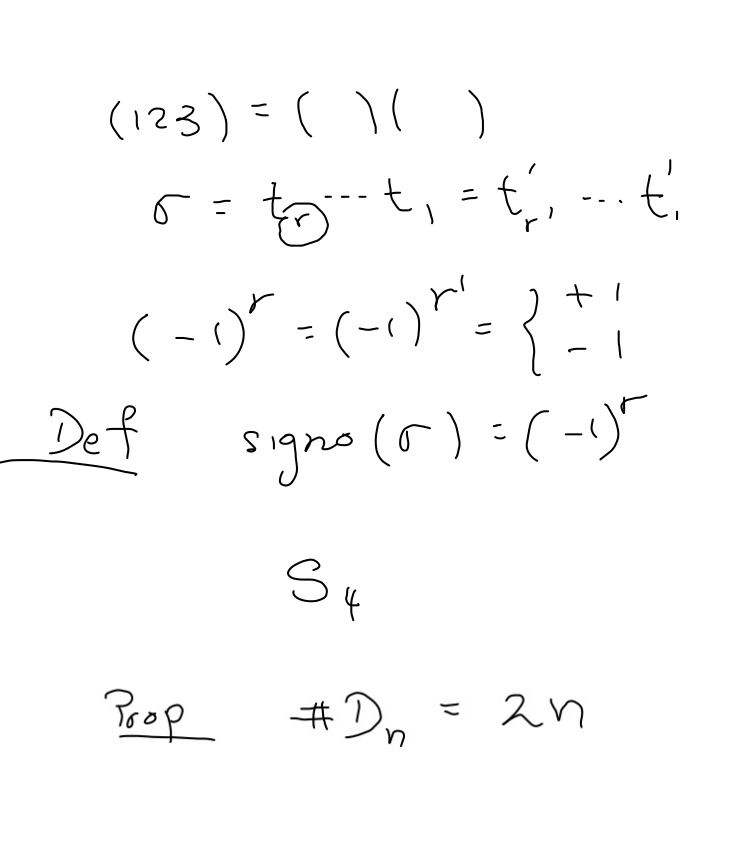 (123) = (  )(  )
σ = t_r ··· t_1 = t'_{r'} ··· t'_1
(-1)^r = (-1)^{r'} = { +1 -1
Def signo(σ) = (-1)^r
S_4
Prop #D_n = 2n